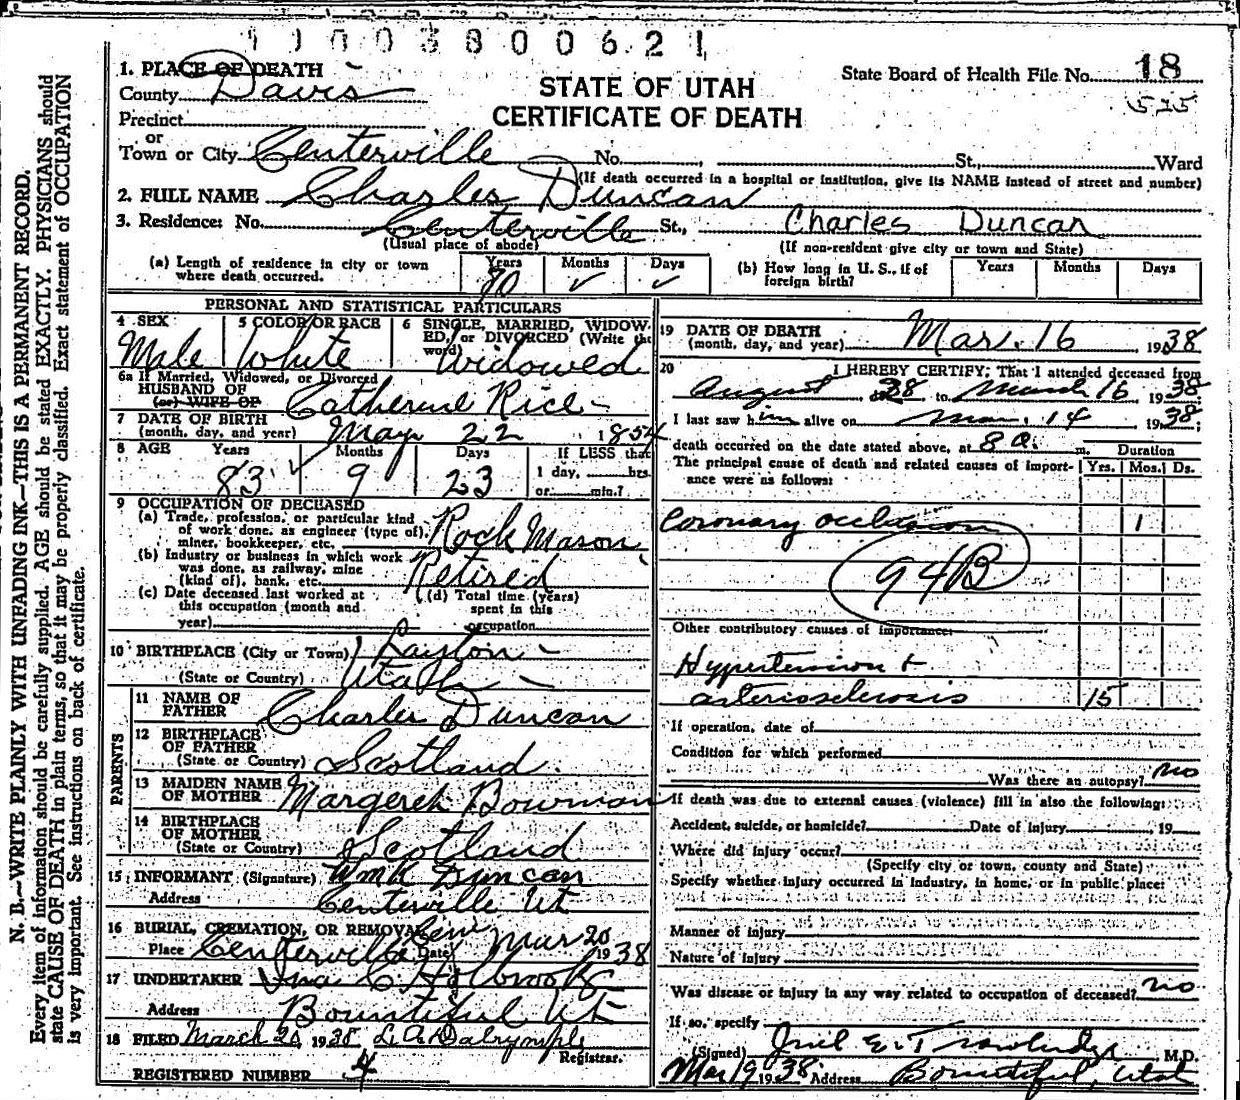 11003800621
1. PLACE OF DEATH
County Davis
STATE OF UTAH
CERTIFICATE OF DEATH
State Board of Health File No. 18
525
Precinct
or
Town or City Centerville No. , St., Ward
(If death occurred in a hospital or institution, give its NAME instead of street and number)
2. FULL NAME Charles Duncan
3. Residence: No. Centerville St., Charles Duncan
(Usual place of abode)
(If non-resident give city or town and State)
(a) Length of residence in city or town where death occurred. Years 80 Months ✓ Days ✓
(b) How long in U. S., if of foreign birth? Years Months Days
PERSONAL AND STATISTICAL PARTICULARS
4 SEX Male
5 COLOR OR RACE White
6 SINGLE, MARRIED, WIDOWED, or DIVORCED (Write the word) Widowed
6a If Married, Widowed, or Divorced
HUSBAND OF Catherine Rice
(or) WIFE OF
7 DATE OF BIRTH
(month, day, and year) May 22 1854
8 AGE Years 83 Months 9 Days 23 If LESS than
1 day, hrs.
or min.?
9 OCCUPATION OF DECEASED
(a) Trade, profession, or particular kind
of work done, as engineer (type of),
miner, bookkeeper, etc. Rock Mason
(b) Industry or business in which work
was done, as railway, mine
(kind of), bank, etc. Retired
(c) Date deceased last worked at
this occupation (month and
year)
(d) Total time (years)
spent in this
occupation
10 BIRTHPLACE (City or Town) Layton
(State or Country) Utah
PARENTS
11 NAME OF
FATHER Charles Duncan
12 BIRTHPLACE
OF FATHER
(State or Country) Scotland
13 MAIDEN NAME
OF MOTHER Margereh Bowman
14 BIRTHPLACE
OF MOTHER
(State or Country) Scotland
15 INFORMANT (Signature) Wm R Duncan
Address Centerville Ut
16 BURIAL, CREMATION, OR REMOVAL
Place Centerville Cem Date Mar 20 1938
17 UNDERTAKER Holbrook
Address Bountiful Ut
18 FILED March 20 1938 L. A. Dalrymple
Registrar.
REGISTERED NUMBER 4
19 DATE OF DEATH
(month, day, and year) Mar. 16, 1938
20 I HEREBY CERTIFY, That I attended deceased from
August, 38 to March 16, 1938
I last saw him alive on Mar. 14 1938;
death occurred on the date stated above, at 8 a. m.
The principal cause of death and related causes of importance were as follows:
Duration
Yrs. Mos. Ds.
Coronary occlusion 1
94B
Other contributory causes of importance:
Hypertension +
arteriosclerosis 15
If operation, date of
Condition for which performed
Was there an autopsy? no
If death was due to external causes (violence) fill in also the following:
Accident, suicide, or homicide? Date of injury , 19
Where did injury occur?
(Specify city or town, county and State)
Specify whether injury occurred in industry, in home, or in public place:
Manner of injury
Nature of injury
Was disease or injury in any way related to occupation of deceased? no
If so, specify
(Signed) E. Trowbridge M.D.
Mar 19 1938 Address Bountiful, Utah
N. B.—WRITE PLAINLY WITH UNFADING INK—THIS IS A PERMANENT RECORD.
Every item of information should be carefully supplied. AGE should be stated EXACTLY. PHYSICIANS should
state CAUSE OF DEATH in plain terms, so that it may be properly classified. Exact statement of OCCUPATION
is very important. See instructions on back of certificate.